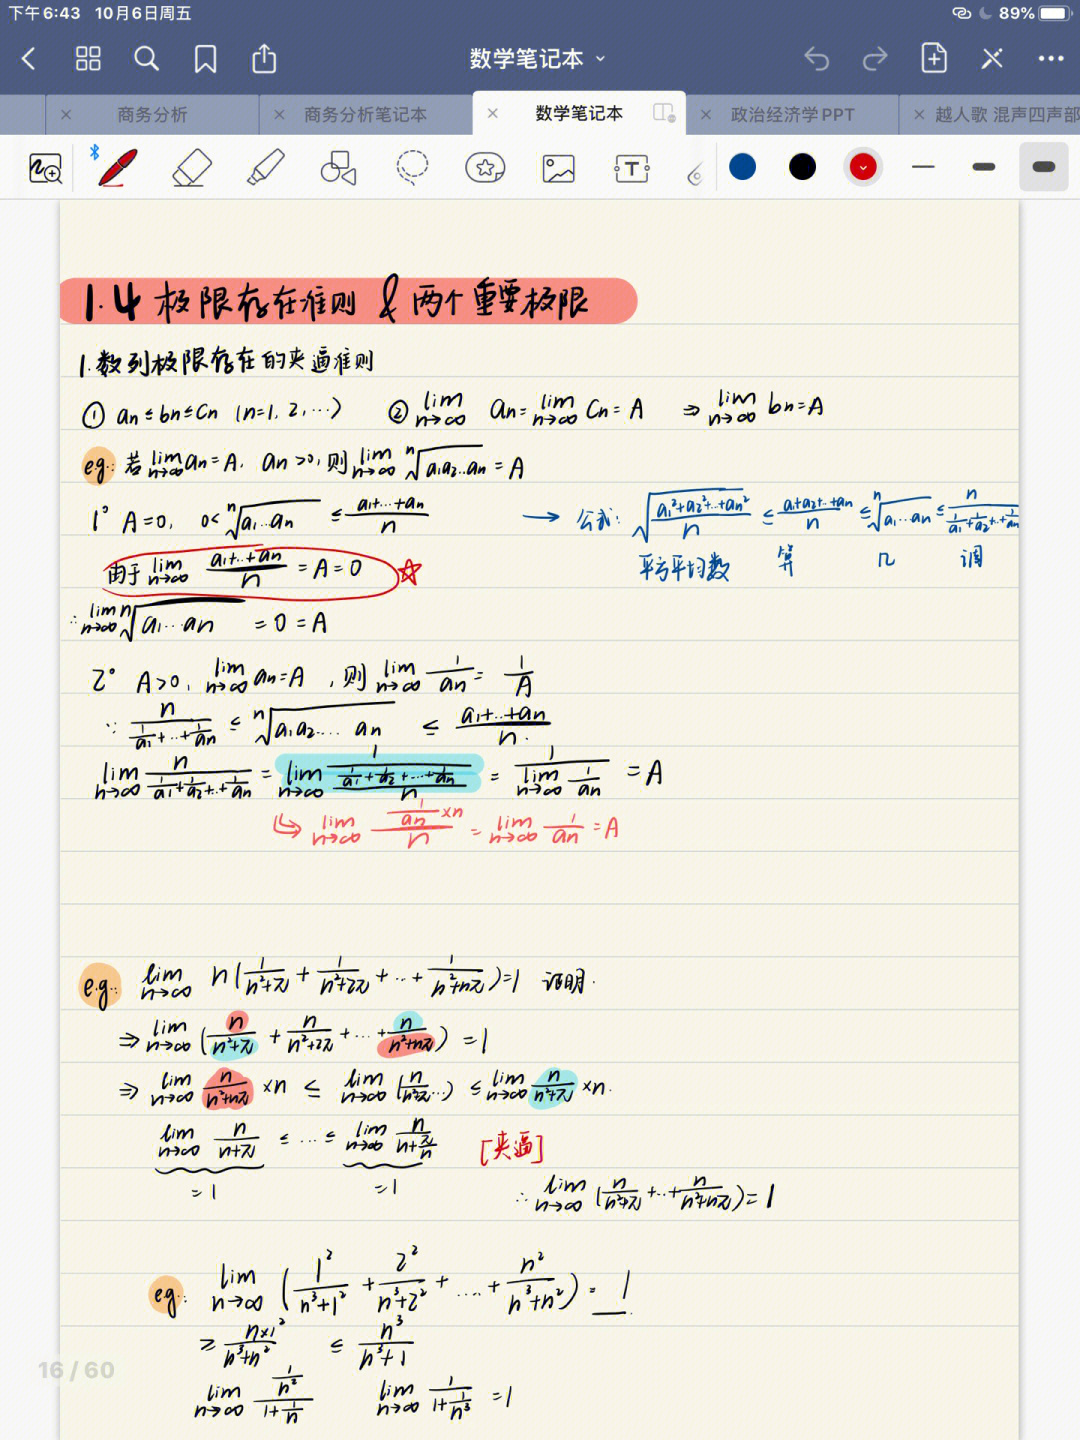 下午6:43 10月6日周五 89%
数学笔记本
商务分析 商务分析笔记本 数学笔记本 政治经济学PPT 越人歌 混声四声部
1.4 极限存在准则 & 两个重要极限
1.数列极限存在的夹逼准则
① an≤bn≤Cn (n=1, 2, …) ② lim n→∞ an = lim n→∞ Cn = A ⇒ lim n→∞ bn=A
eg.: 若 lim n→∞ an=A, an>0, 则 lim n→∞ ⁿ√(a₁a₂…an) = A
1° A=0, 0< ⁿ√(a₁…an) ≤ (a₁+…+an)/n → 公式: √((a₁²+a₂²+…+an²)/n) ≤ (a₁+a₂+…+an)/n ≤ ⁿ√(a₁…an) ≤ n/(1/a₁+1/a₂+…+1/an)
平方平均数 算 几 调
由于 lim n→∞ (a₁+…+an)/n = A = 0 ☆
∴ lim n→∞ ⁿ√(a₁…an) = 0 = A
2° A>0, lim n→∞ an=A, 则 lim n→∞ 1/an = 1/A
∵ n/(1/a₁+…+1/an) ≤ ⁿ√(a₁a₂… an) ≤ (a₁+…+an)/n.
lim n→∞ n/(1/a₁+1/a₂+…+1/an) = lim n→∞ 1/((1/a₁+1/a₂+…+1/an)/n) = 1/(lim n→∞ 1/an) = A
↳ lim n→∞ (1/an ×n)/n = lim n→∞ 1/an = A
e.g.: lim n→∞ n(1/(n²+π) + 1/(n²+2π) + … + 1/(n²+nπ))=1 证明.
⇒ lim n→∞ (n/(n²+π) + n/(n²+2π) + … + n/(n²+nπ)) = 1
⇒ lim n→∞ n/(n²+nπ) ×n ≤ lim n→∞ (n/(n²+π)…) ≤ lim n→∞ n/(n²+π) ×n.
lim n→∞ n/(n+π) ≤ … ≤ lim n→∞ n/(n+π/n) [夹逼]
=1 =1 ∴ lim n→∞ (n/(n²+π)+…+n/(n²+nπ)) = 1
eg.: lim n→∞ (1²/(n³+1²) + 2²/(n³+2²) + …. + n²/(n³+n²)) = 1.
≥ n×1²/(n³+n²) ≤ n³/(n³+1)
lim n→∞ (1/n²)/(1+1/n) lim n→∞ 1/(1+1/n³) =1
16 / 60